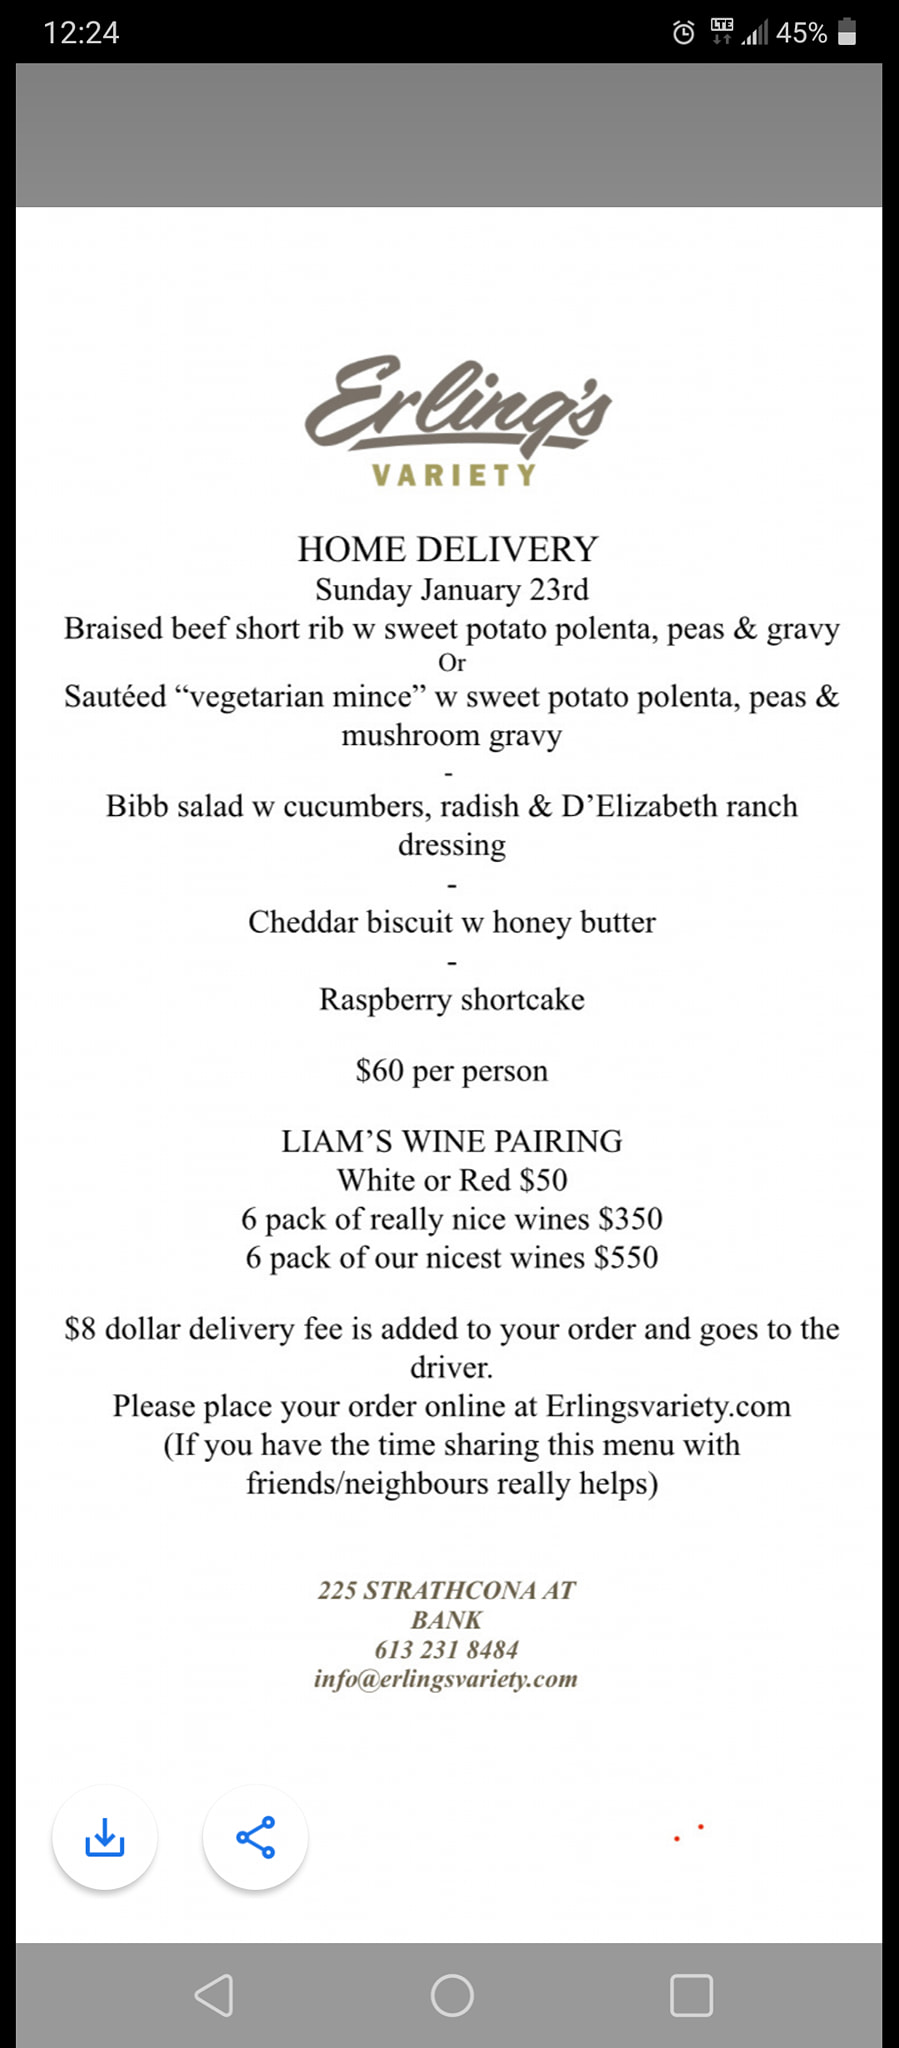 12:24
LTE
45%
Erling's
VARIETY
HOME DELIVERY
Sunday January 23rd
Braised beef short rib w sweet potato polenta, peas & gravy
Or
Sautéed “vegetarian mince” w sweet potato polenta, peas &
mushroom gravy
-
Bibb salad w cucumbers, radish & D’Elizabeth ranch
dressing
-
Cheddar biscuit w honey butter
-
Raspberry shortcake
$60 per person
LIAM’S WINE PAIRING
White or Red $50
6 pack of really nice wines $350
6 pack of our nicest wines $550
$8 dollar delivery fee is added to your order and goes to the
driver.
Please place your order online at Erlingsvariety.com
(If you have the time sharing this menu with
friends/neighbours really helps)
225 STRATHCONA AT
BANK
613 231 8484
info@erlingsvariety.com